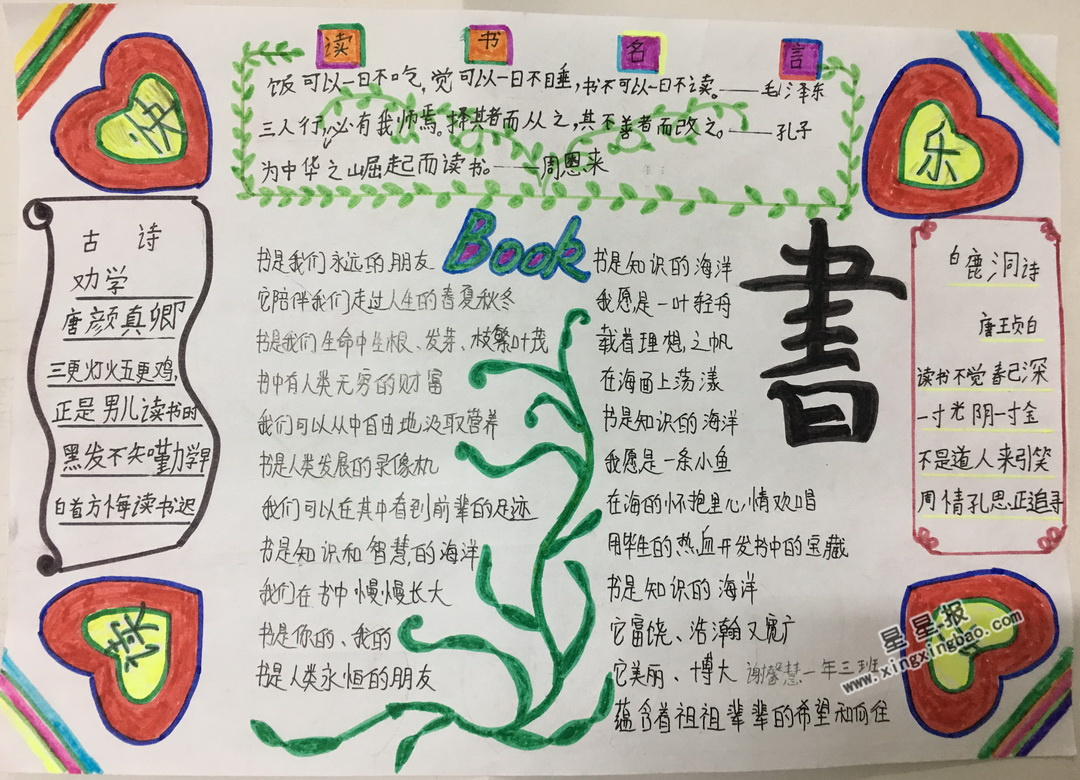 读书名言
饭可以一日不吃,觉可以一日不睡,书不可以一日不读。——毛泽东
三人行,必有我师焉。择其者而从之,其不善者而改之。——孔子
为中华之崛起而读书。——周恩来
快
乐
读
古诗
劝学
唐颜真卿
三更灯火五更鸡,
正是男儿读书的
黑发不知勤学早
白首方悔读书迟
Book
書
书是我们永远的朋友
它陪伴我们走过人生的春夏秋冬
书是我们生命中生根、发芽、枝繁叶茂
书中有人类无穷的财富
我们可以从中自由地汲取营养
书是人类发展的录像机
我们可以在其中看到前辈的足迹
书是知识和智慧的海洋
我们在书中慢慢长大
书是你的、我的
书是人类永恒的朋友
书是知识的海洋
我愿是一叶轻舟
载着理想之帆
在海面上荡漾
书是知识的海洋
我愿是一条小鱼
在海的怀抱里心情欢唱
用毕生的热血开发书中的宝藏
书是知识的海洋
它富饶、浩瀚又宽广
它美丽、博大
谢馨慧一年三班
蕴含着祖祖辈辈的希望和向往
白鹿洞诗
唐王贞白
读书不觉春已深
一寸光阴一寸金
不是道人来引笑
周情孔思正追寻
星星报
www.xingxingbao.com